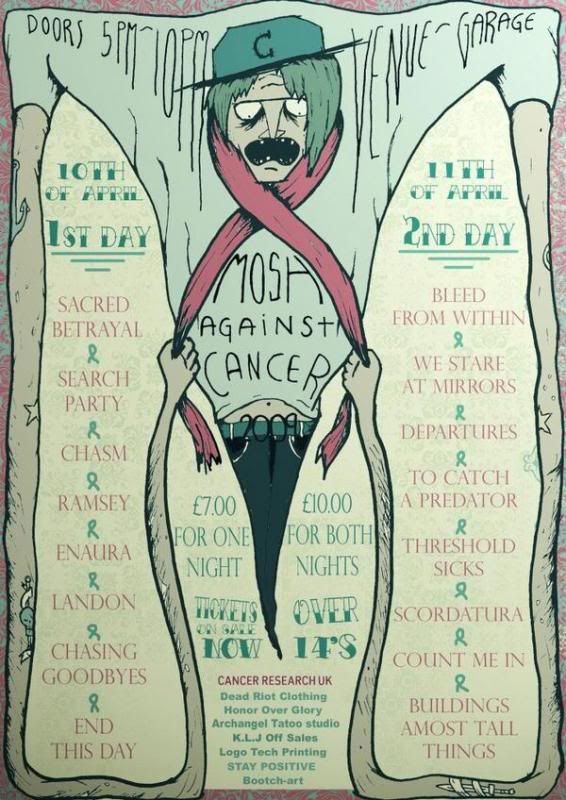 DOORS 5PM-10PM VENUE-GARAGE
C
10TH
OF APRIL
1ST DAY
SACRED
BETRAYAL
SEARCH
PARTY
CHASM
RAMSEY
ENAURA
LANDON
CHASING
GOODBYES
END
THIS DAY
MOSH
AGAINST
CANCER
2009
£7.00
FOR ONE
NIGHT
TICKETS
ON SALE
NOW
£10.00
FOR BOTH
NIGHTS
OVER
14'S
CANCER RESEARCH UK
Dead Riot Clothing
Honor Over Glory
Archangel Tatoo studio
K.L.J Off Sales
Logo Tech Printing
STAY POSITIVE
Bootch-art
11TH
OF APRIL
2ND DAY
BLEED
FROM WITHIN
WE STARE
AT MIRRORS
DEPARTURES
TO CATCH
A PREDATOR
THRESHOLD
SICKS
SCORDATURA
COUNT ME IN
BUILDINGS
AMOST TALL
THINGS